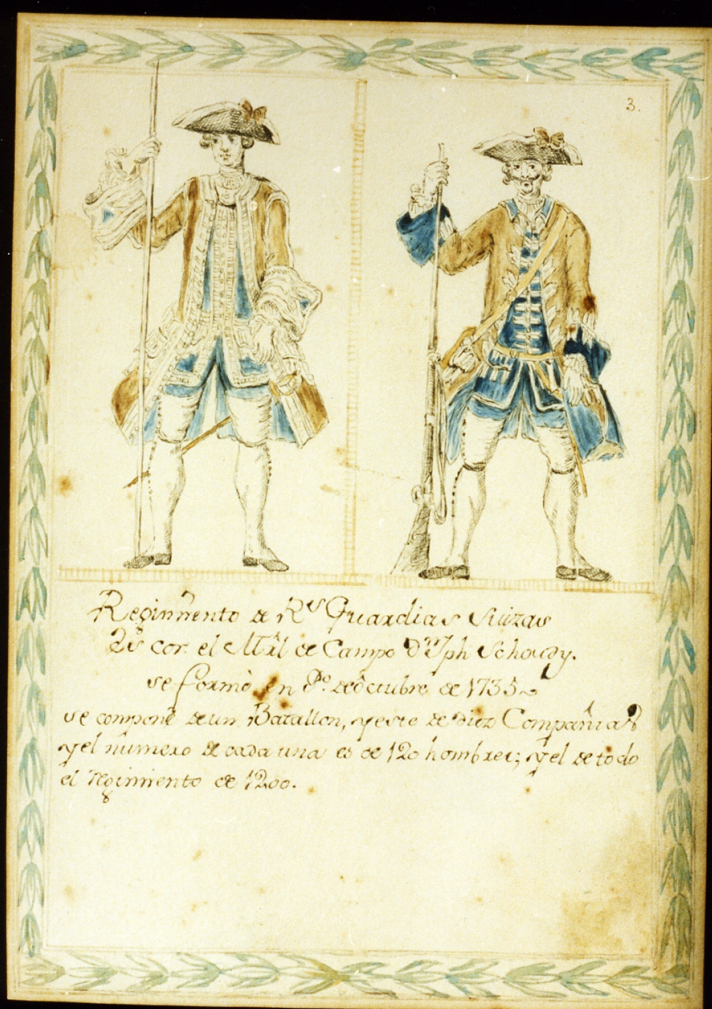 3.
Regimiento de Rs Guardias Suizas
Es cor. el Mral de Campo Dn Jph Schaudy.
se formó en Pº de Octubre de 1735
se compone de un Batallon, y este de diez Compañias
y el número de cada una es de 120 hombres; y el de todo
el regimiento de 1200.